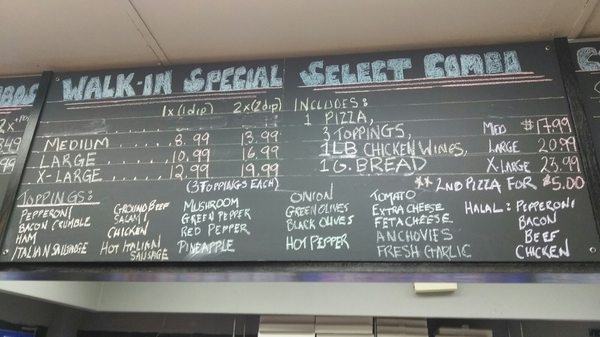 WALK-IN SPECIAL
1x (1 dip) 2x (2 dip)
MEDIUM 8.99 13.99
LARGE 10.99 16.99
X-LARGE 12.99 19.99
(3 TOPPINGS EACH)
SELECT COMBO
INCLUDES:
1 PIZZA,
3 TOPPINGS, MED $17.99
1LB CHICKEN WINGS, LARGE 20.99
1 G. BREAD X-LARGE 23.99
** 2ND PIZZA FOR $5.00
TOPPINGS:
PEPPERONI
BACON CRUMBLE
HAM
ITALIAN SAUSAGE
GROUND BEEF
SALAMI
CHICKEN
HOT ITALIAN
SAUSAGE
MUSHROOM
GREEN PEPPER
RED PEPPER
PINEAPPLE
ONION
GREEN OLIVES
BLACK OLIVES
HOT PEPPER
TOMATO
EXTRA CHEESE
FETA CHEESE
ANCHOVIES
FRESH GARLIC
HALAL: PEPPERONI
BACON
BEEF
CHICKEN